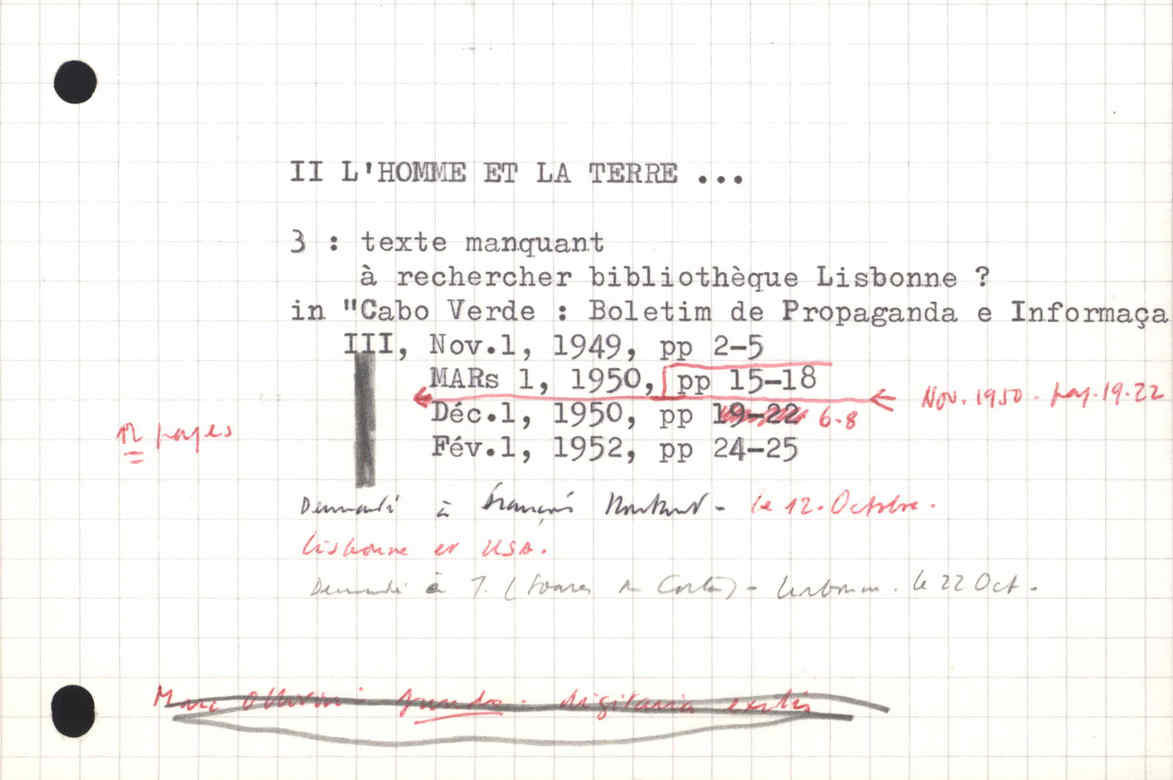 II L'HOMME ET LA TERRE ...
3 : texte manquant
à rechercher bibliothèque Lisbonne ?
in "Cabo Verde : Boletim de Propaganda e Informaça
III, Nov.1, 1949, pp 2-5
MARs 1, 1950, pp 15-18
Nov. 1950 - pag. 19-22
Déc.1, 1950, pp 19-22 6-8
12 pages
Fév.1, 1952, pp 24-25
Demandé à François - le 12. Octobre.
Lisbonne et USA.
Demandé à T. (Soares da Costa) - Lisbonne. le 22 Oct.
Marc Ollivier digitaria exilis